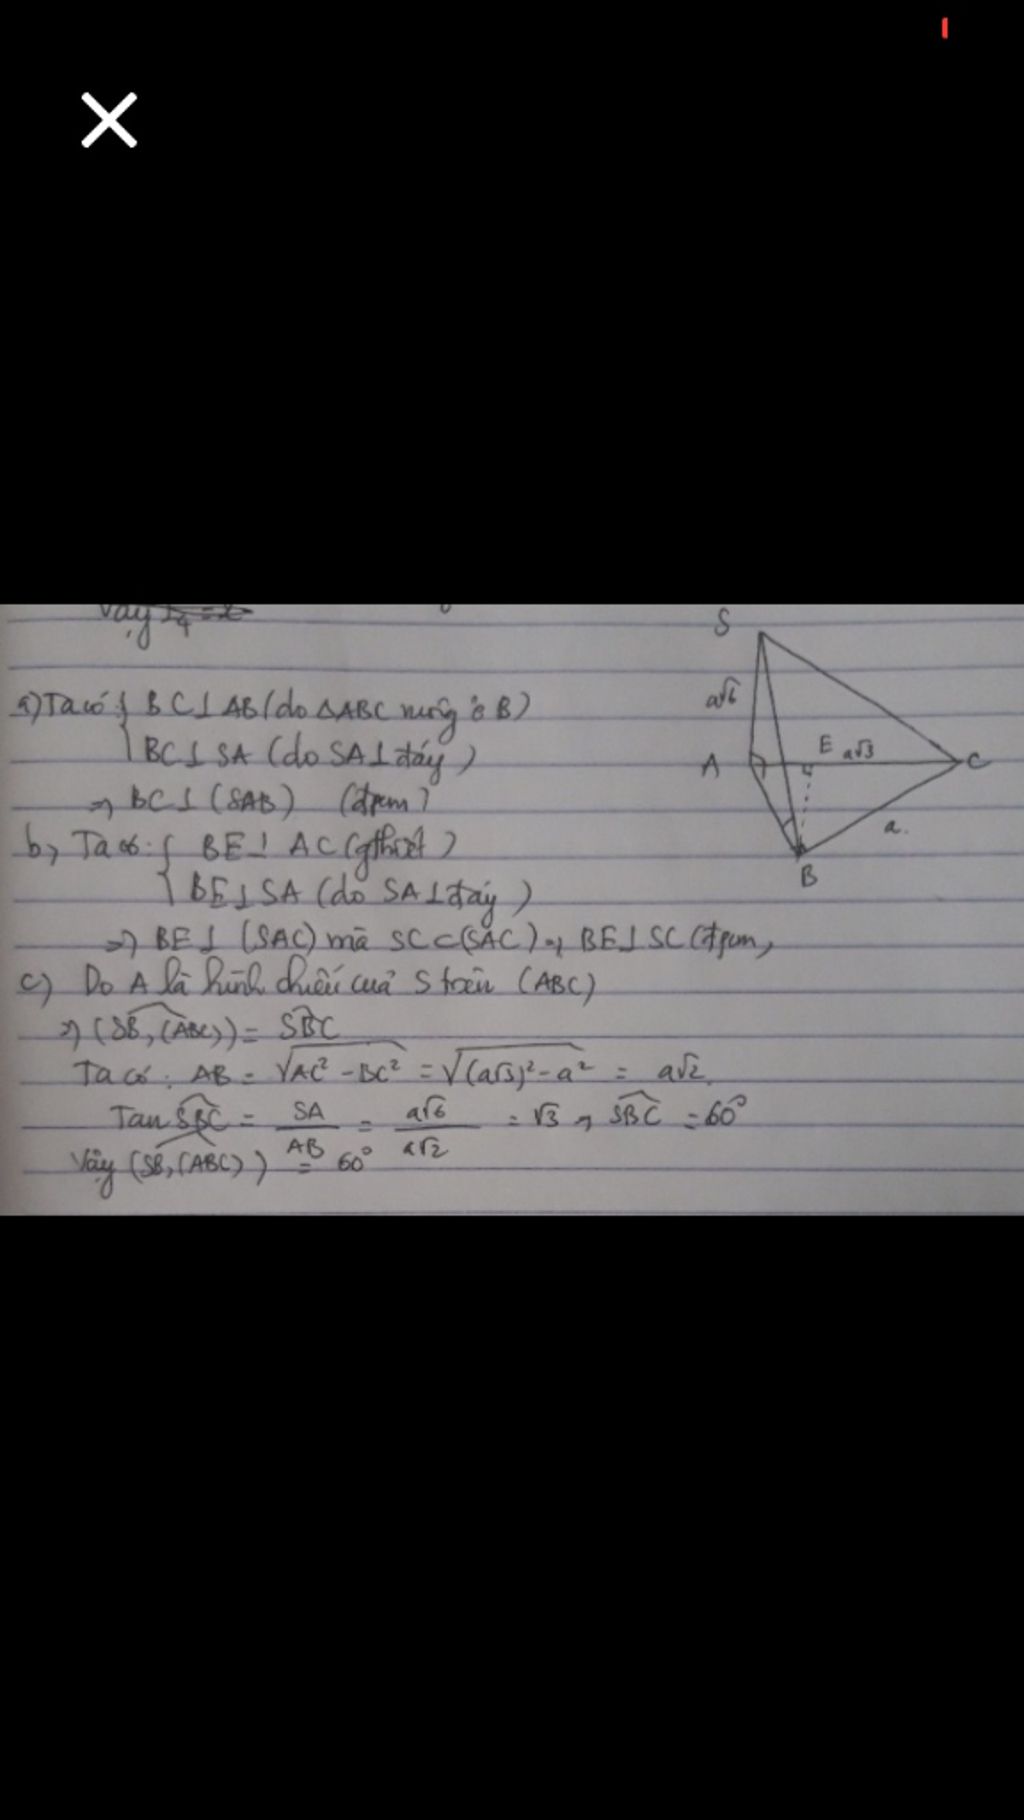 Vậy I₄ = x
a) Ta có { BC ⊥ AB (do ΔABC vuông ở B)
BC ⊥ SA (do SA ⊥ đáy)
=> BC ⊥ (SAB) (đpcm)
b, Ta có: { BE ⊥ AC (gthiết)
BE ⊥ SA (do SA ⊥ đáy)
=> BE ⊥ (SAC) mà SC ⊂ (SAC) => BE ⊥ SC (đpcm)
c) Do A là hình chiếu của S trên (ABC)
=> (SB, (ABC)) = SBC
Ta có: AB = √AC² - BC² = √(a√3)² - a² = a√2
Tan SBC = SA / AB = a√6 / a√2 = √3 => SBC = 60°
Vậy (SB, (ABC)) = 60°
S
a√6
A
E
a√3
C
a.
B